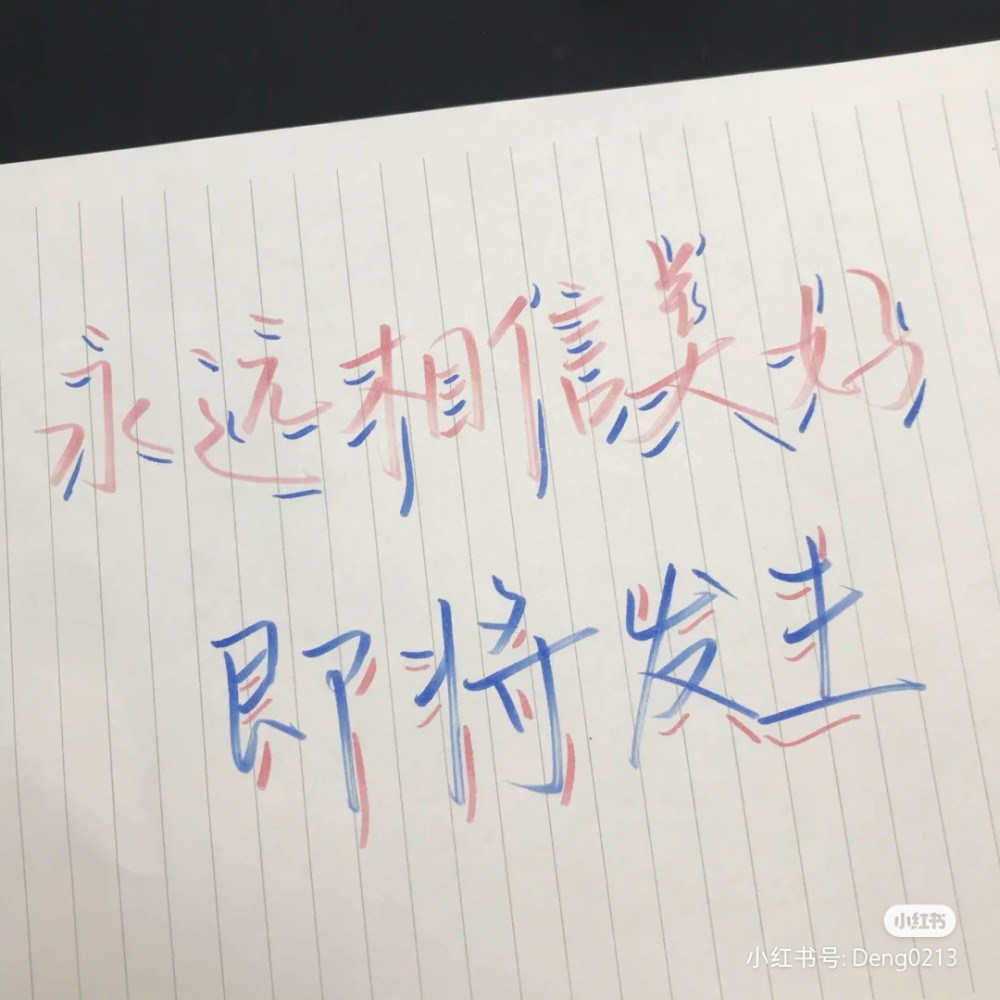 永远相信美好
即将发生
小红书
小红书号: Deng0213